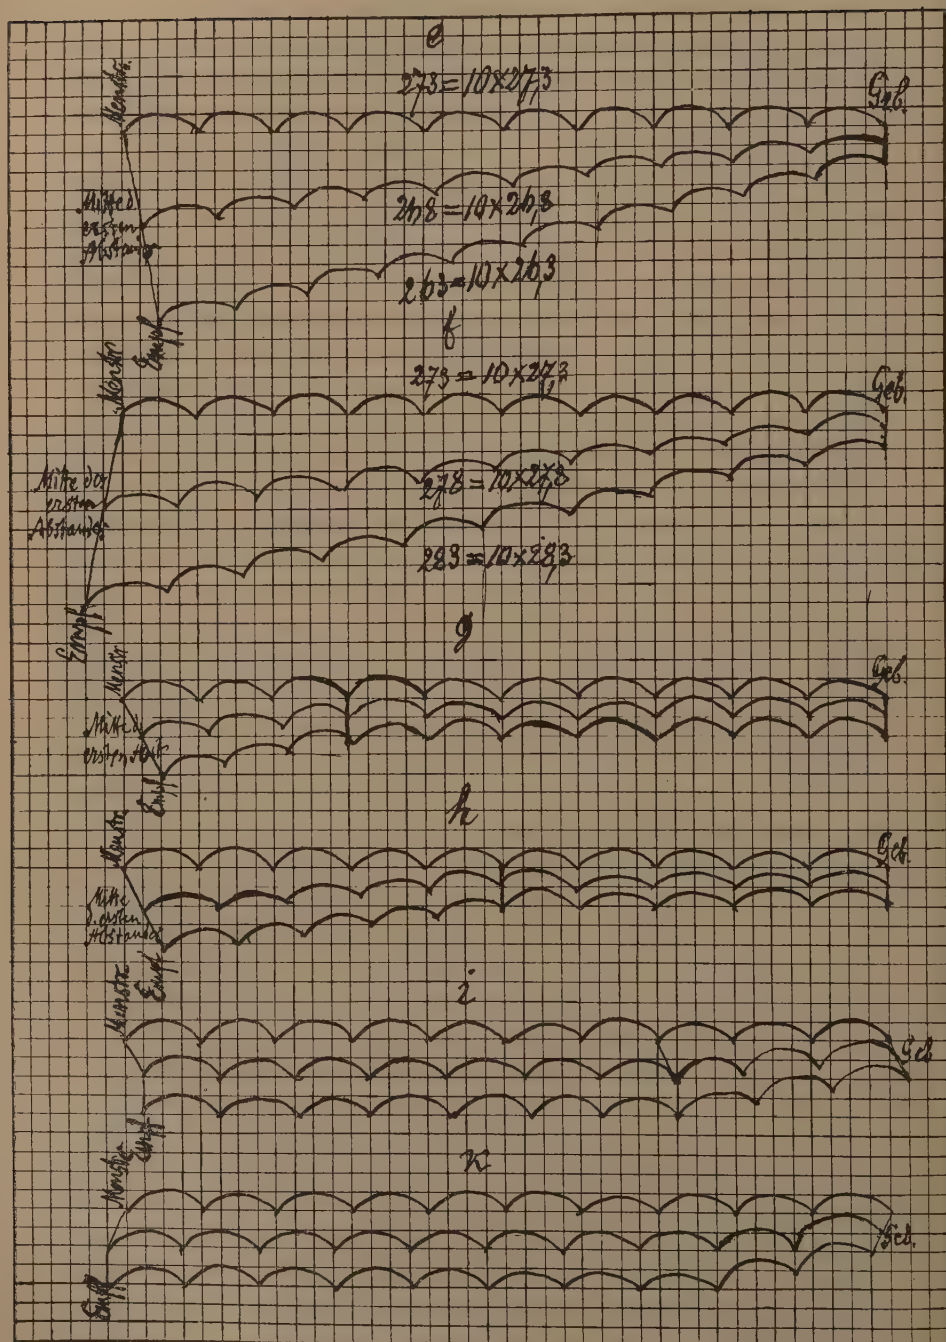 e
273=10×27,3
Menstr.
Geb.
Mitte d.
ersten
Abstandes
268=10×26,8
263=10×26,3
Empf
f
Menstr
273=10×27,3
Geb.
Mitte des
ersten
Abstandes
278=10×27,8
283=10×28,3
Empf
g
Menstr
Geb.
Mitte d.
ersten Abst
Empf
h
Menstr.
Geb.
Mitte
d. ersten
Abstandes
Empf
i
Menstr.
Geb
Empf
k
Menstr
Geb.
Empf